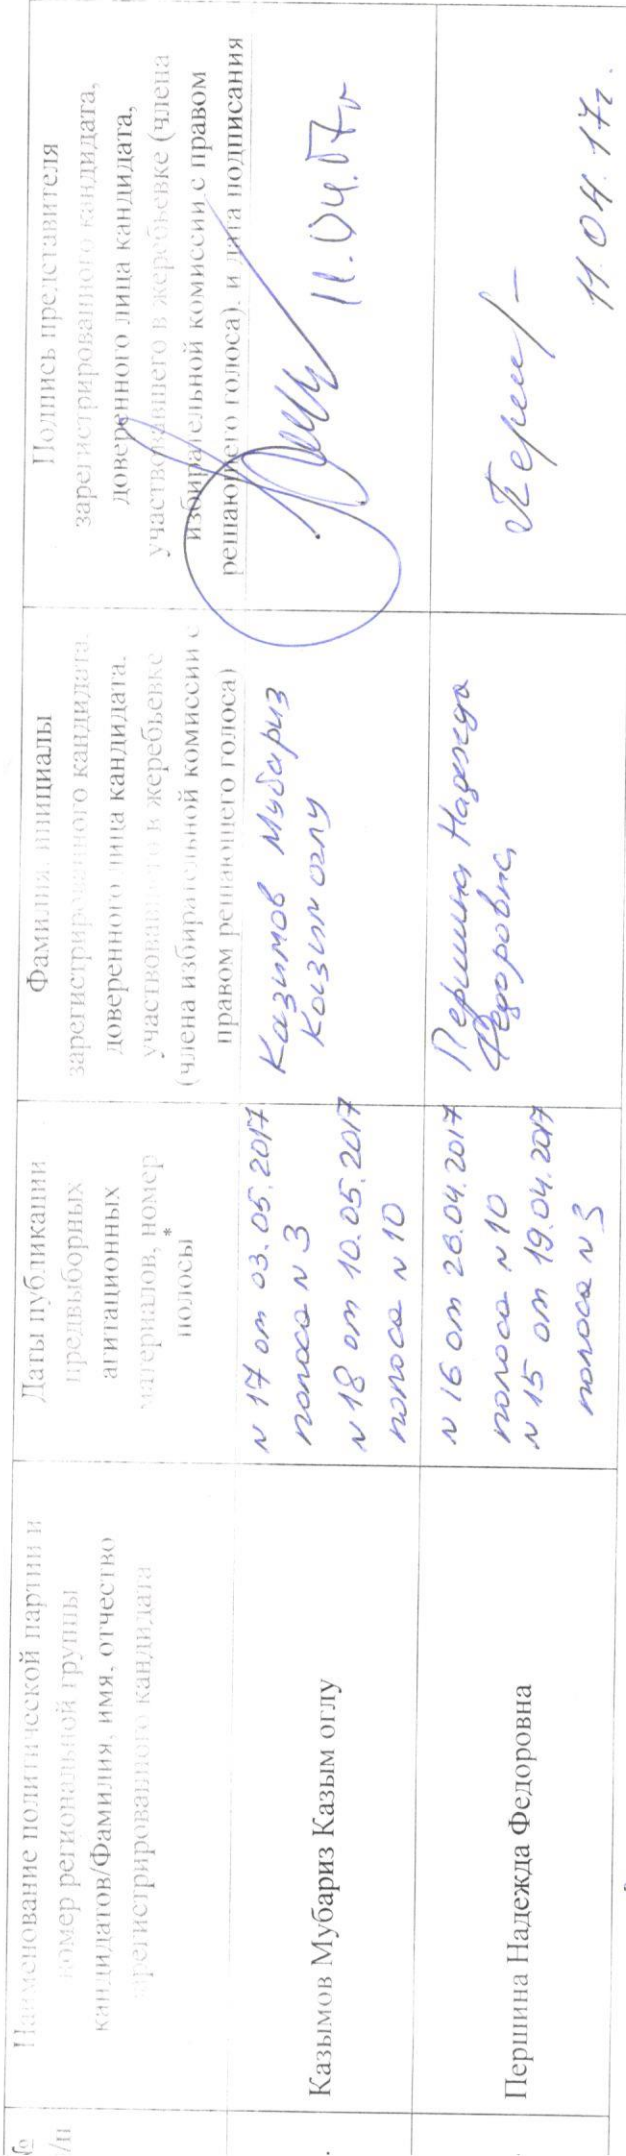 №
/п
Наименование политической партии и
номер региональной группы
кандидатов/Фамилия, имя, отчество
зарегистрированного кандидата
Даты публикации
предвыборных
агитационных
материалов, номер
полосы *
Фамилия, инициалы
зарегистрированного кандидата,
доверенного лица кандидата,
участвовавшего в жеребьевке
(члена избирательной комиссии с
правом решающего голоса)
Подпись представителя
зарегистрированного кандидата,
доверенного лица кандидата,
участвовавшего в жеребьевке (члена
избирательной комиссии с правом
решающего голоса) и дата подписания
Казымов Мубариз Казым оглу
N 17 от 03.05.2017
полоса N 3
N 18 от 10.05.2017
полоса N 10
Казимов Мубариз
Казим оглу
11.04.17г
Першина Надежда Федоровна
N 16 от 26.04.2017
полоса N 10
N 15 от 19.04.2017
полоса N 3
Першина Надежда
Федоровна
11.04.17г.